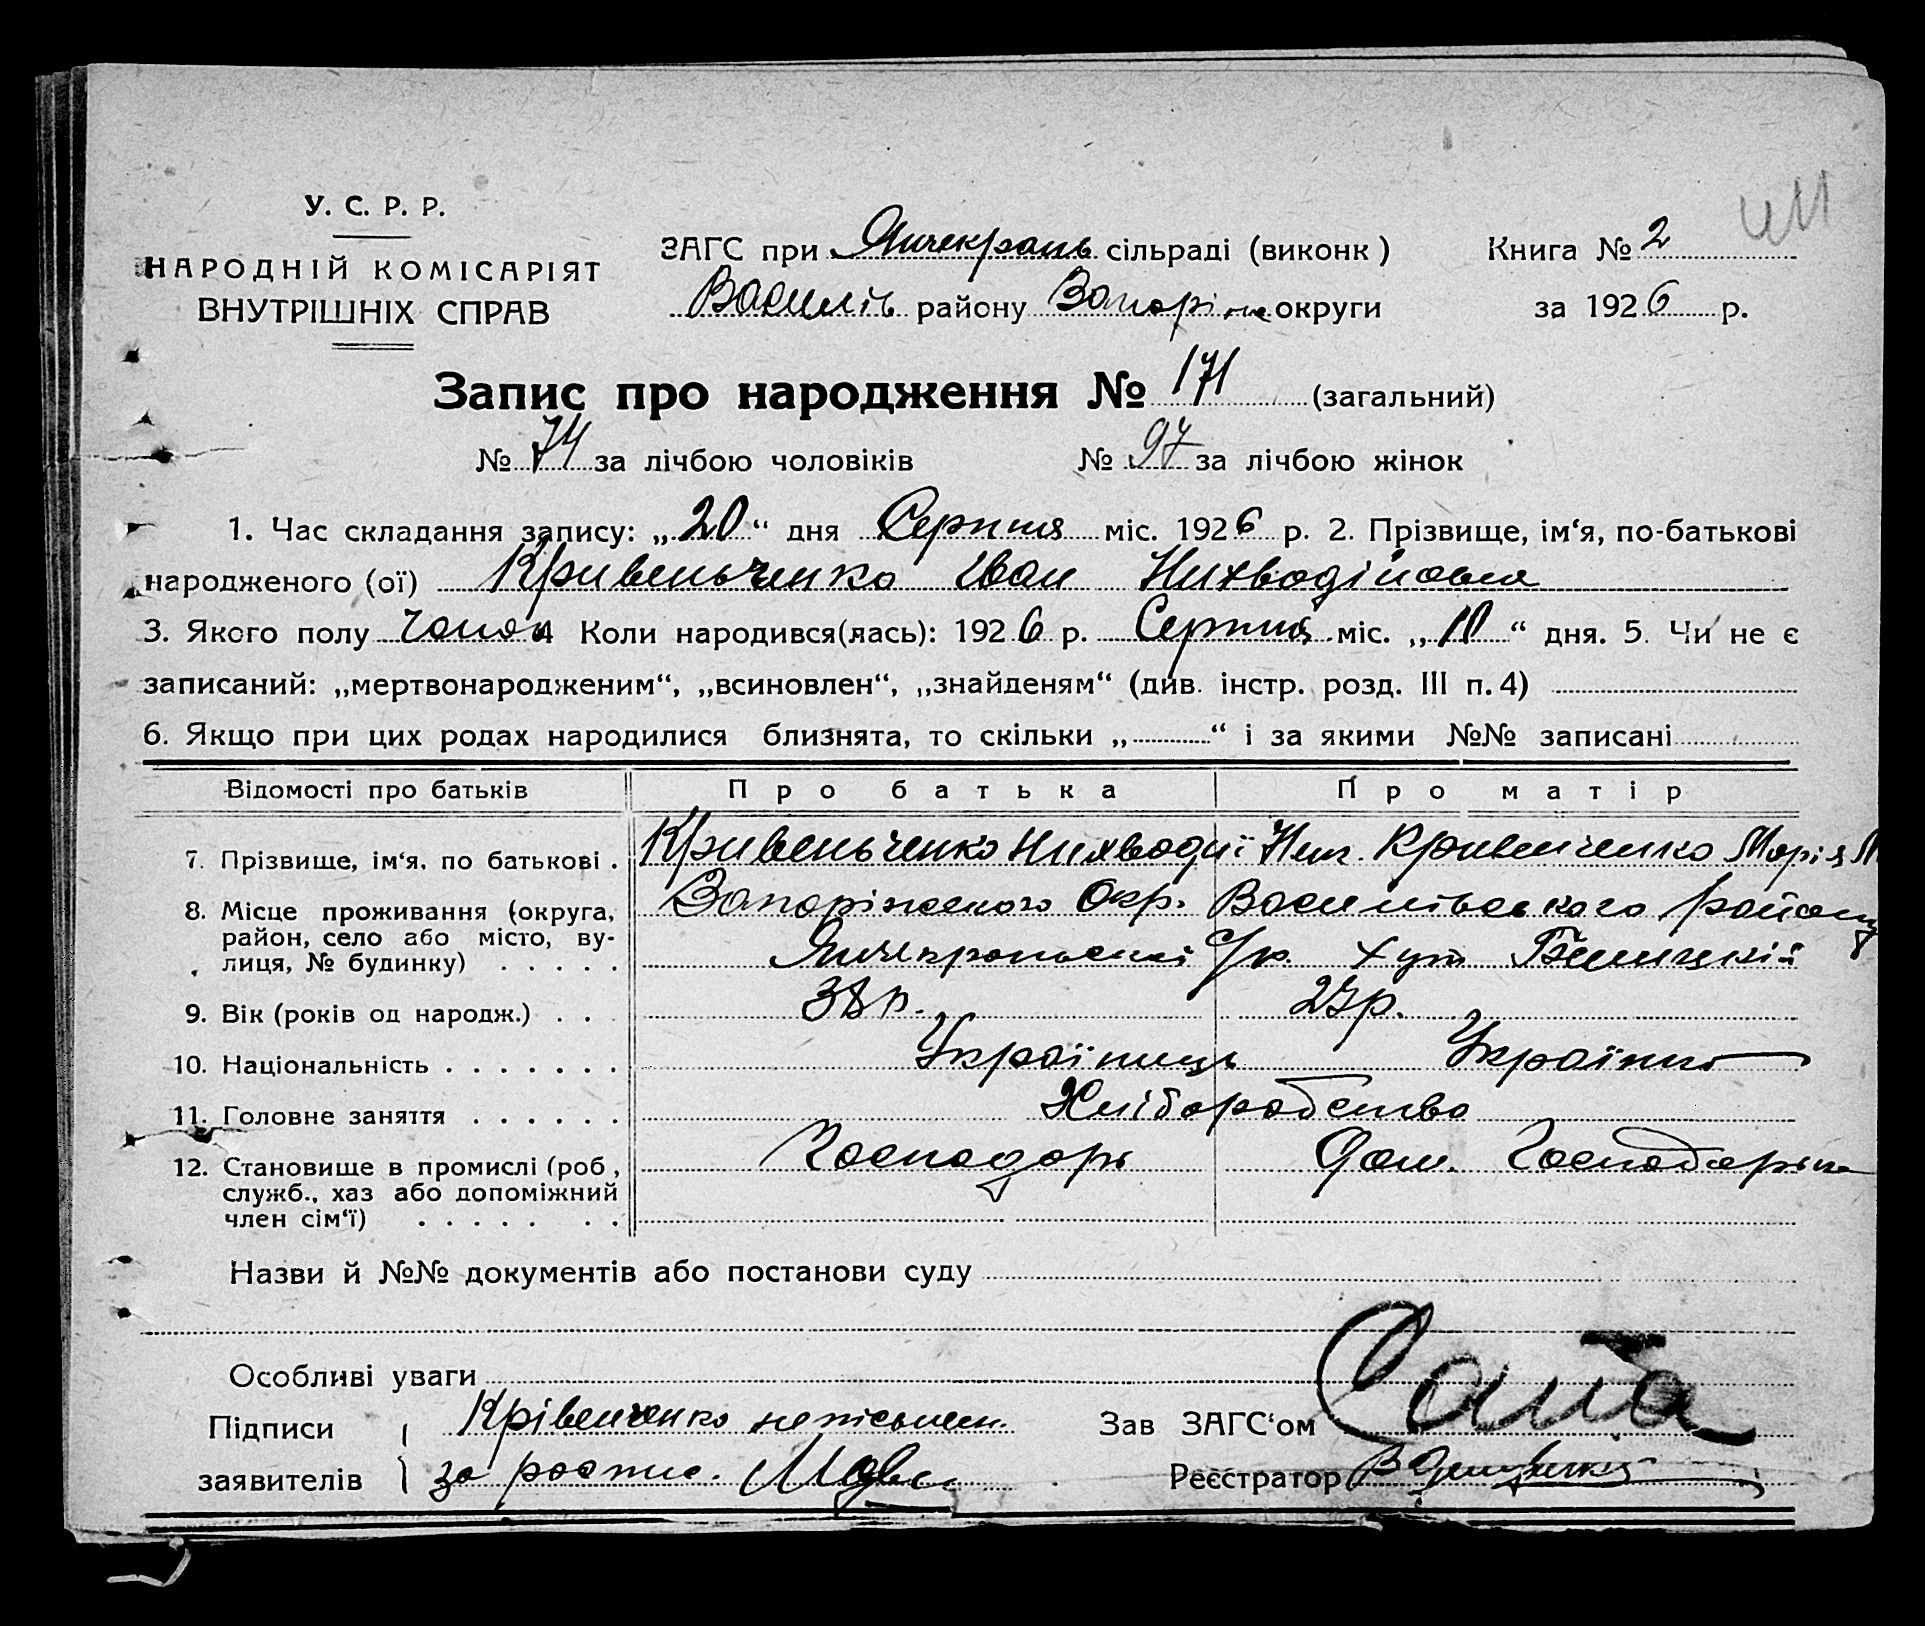 У. С. Р. Р.
НАРОДНІЙ КОМІСАРІЯТ
ВНУТРІШНІХ СПРАВ
ЗАГС при Янчекрань сільраді (виконк) Книга № 2
Василів району Запоріж округи за 1926 р.
Запис про народження № 171 (загальний)
№ 74 за лічбою чоловіків № 97 за лічбою жінок
1. Час складання запису: „20“ дня Серпня міс. 1926 р. 2. Прізвище, ім‘я, по-батькові
народженого (ої) Кривеньченко Іван
3. Якого полу 4 Коли народився(лась): 1926 р. Серпня міс. „10“ дня. 5. Чи не є
записаний: „мертвонародженим“, „всиновлен“, „знайденям“ (див. інстр. розд. III п. 4)
6. Якщо при цих родах народилися близнята, то скільки „ “ і за якими №№ записані
Відомості про батьків Про батька Про матір
7. Прізвище, ім‘я, по батькові . Кривеньченко Кривенченко Марія
8. Місце проживання (округа, Запоріжського Окр. Василівського району
район, село або місто, ву-
лиця, № будинку) . . . . . С/р. хут
9. Вік (років од народж.) . . . 38 р. 27 р.
10. Національність . . . . . . . Українець Українка
11. Головне заняття . . . . . . Хліборобство
12. Становище в промислі (роб, Господарь Дом. Господарька
служб., хаз або допоміжний
член сім‘ї) . . . . . . .
Назви й №№ документів або постанови суду
Особливі уваги
Підписи Крівенченко неписьмен. Зав ЗАГС‘ом
заявителів за роспис. Реєстратор